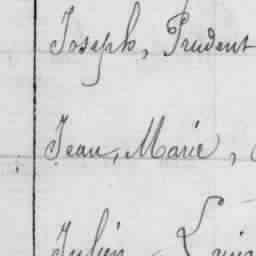 Joseph, Prudent
Jean, Marie,
Julien